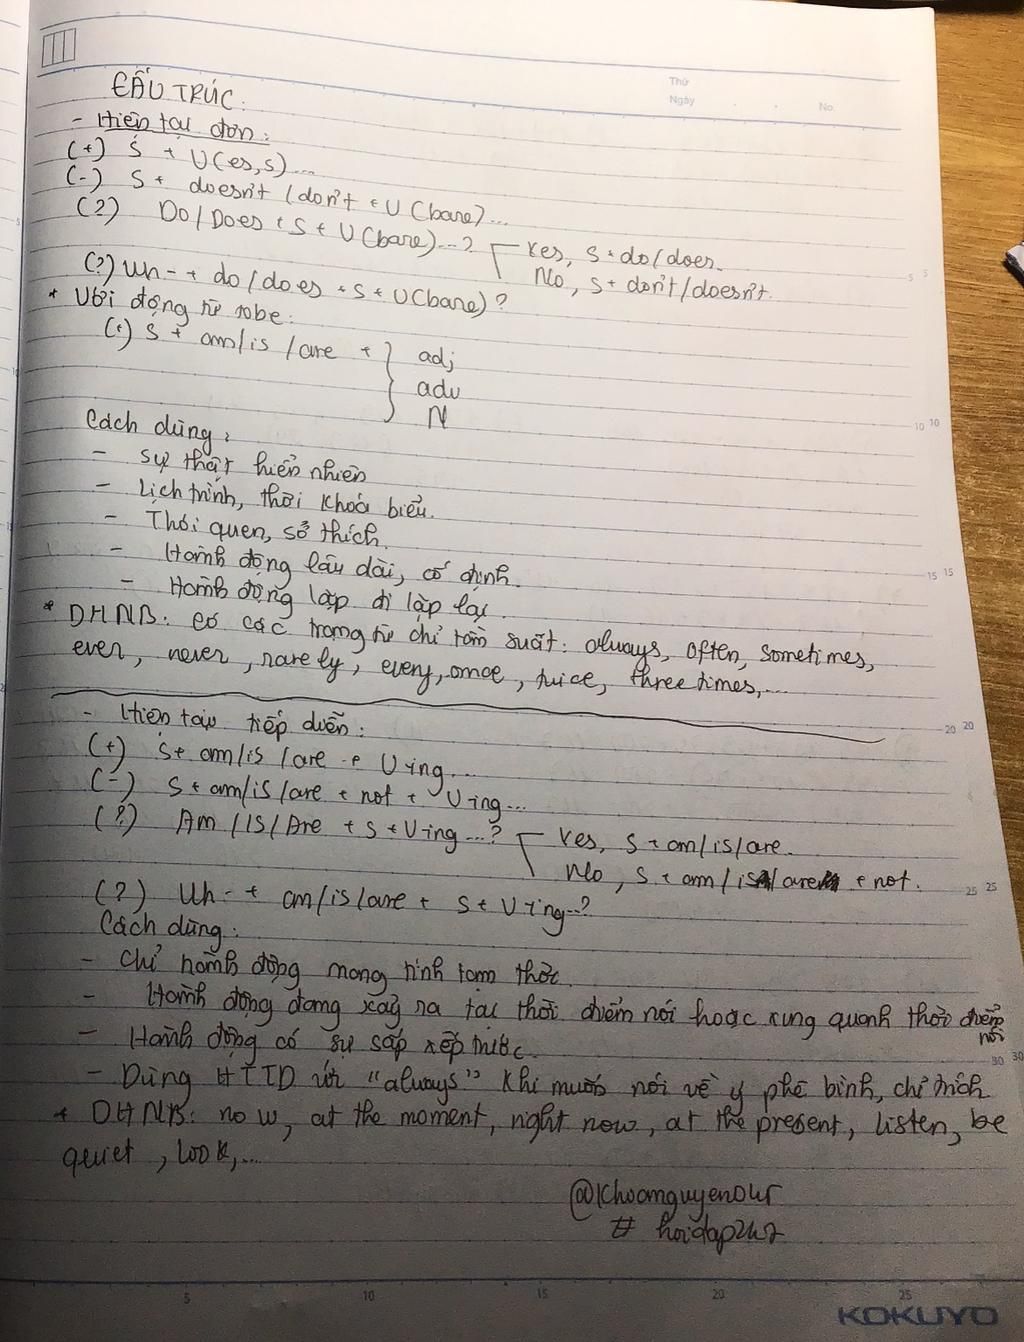 Thứ
Ngày
No.
CẤU TRÚC:
- Hiện tại đơn:
(+) S + V(es,s)...
(-) S + doesn't / don't + V (bare)...
(?) Do/Does + S + V (bare)...? Yes, S + do/does.
No, S + don't/doesn't.
(?) Wh- + do/does + S + V(bare)?
* Với động từ tobe:
(+) S + am/is/are + adj
adv
N
Cách dùng:
- Sự thật hiển nhiên
- Lịch trình, thời khoá biểu.
- Thói quen, sở thích.
- Hành động lâu dài, cố định.
- Hành động lặp đi lặp lại.
* DHNB: có các trạng từ chỉ tần suất: always, often, sometimes,
ever, never, rarely, every, once, twice, three times,...
- Hiện tại tiếp diễn:
(+) S + am/is/are + V-ing...
(-) S + am/is/are + not + V-ing...
(?) Am/Is/Are + S + V-ing...? Yes, S + am/is/are.
No, S + am/is/are + not.
(?) Wh- + am/is/are + S + V-ing...?
Cách dùng:
- Chỉ hành động mang tính tạm thời.
- Hành động đang xảy ra tại thời điểm nói hoặc xung quanh thời điểm
nói
- Hành động có sự sắp xếp trước.
- Dùng HTTD với "always" khi muốn nói về ý phê bình, chỉ trích
* DHNB: now, at the moment, right now, at the present, listen, be
quiet, look,...
@Khoanguyen0ur
# hoidap247
5 10 15 20 25
KOKUYO